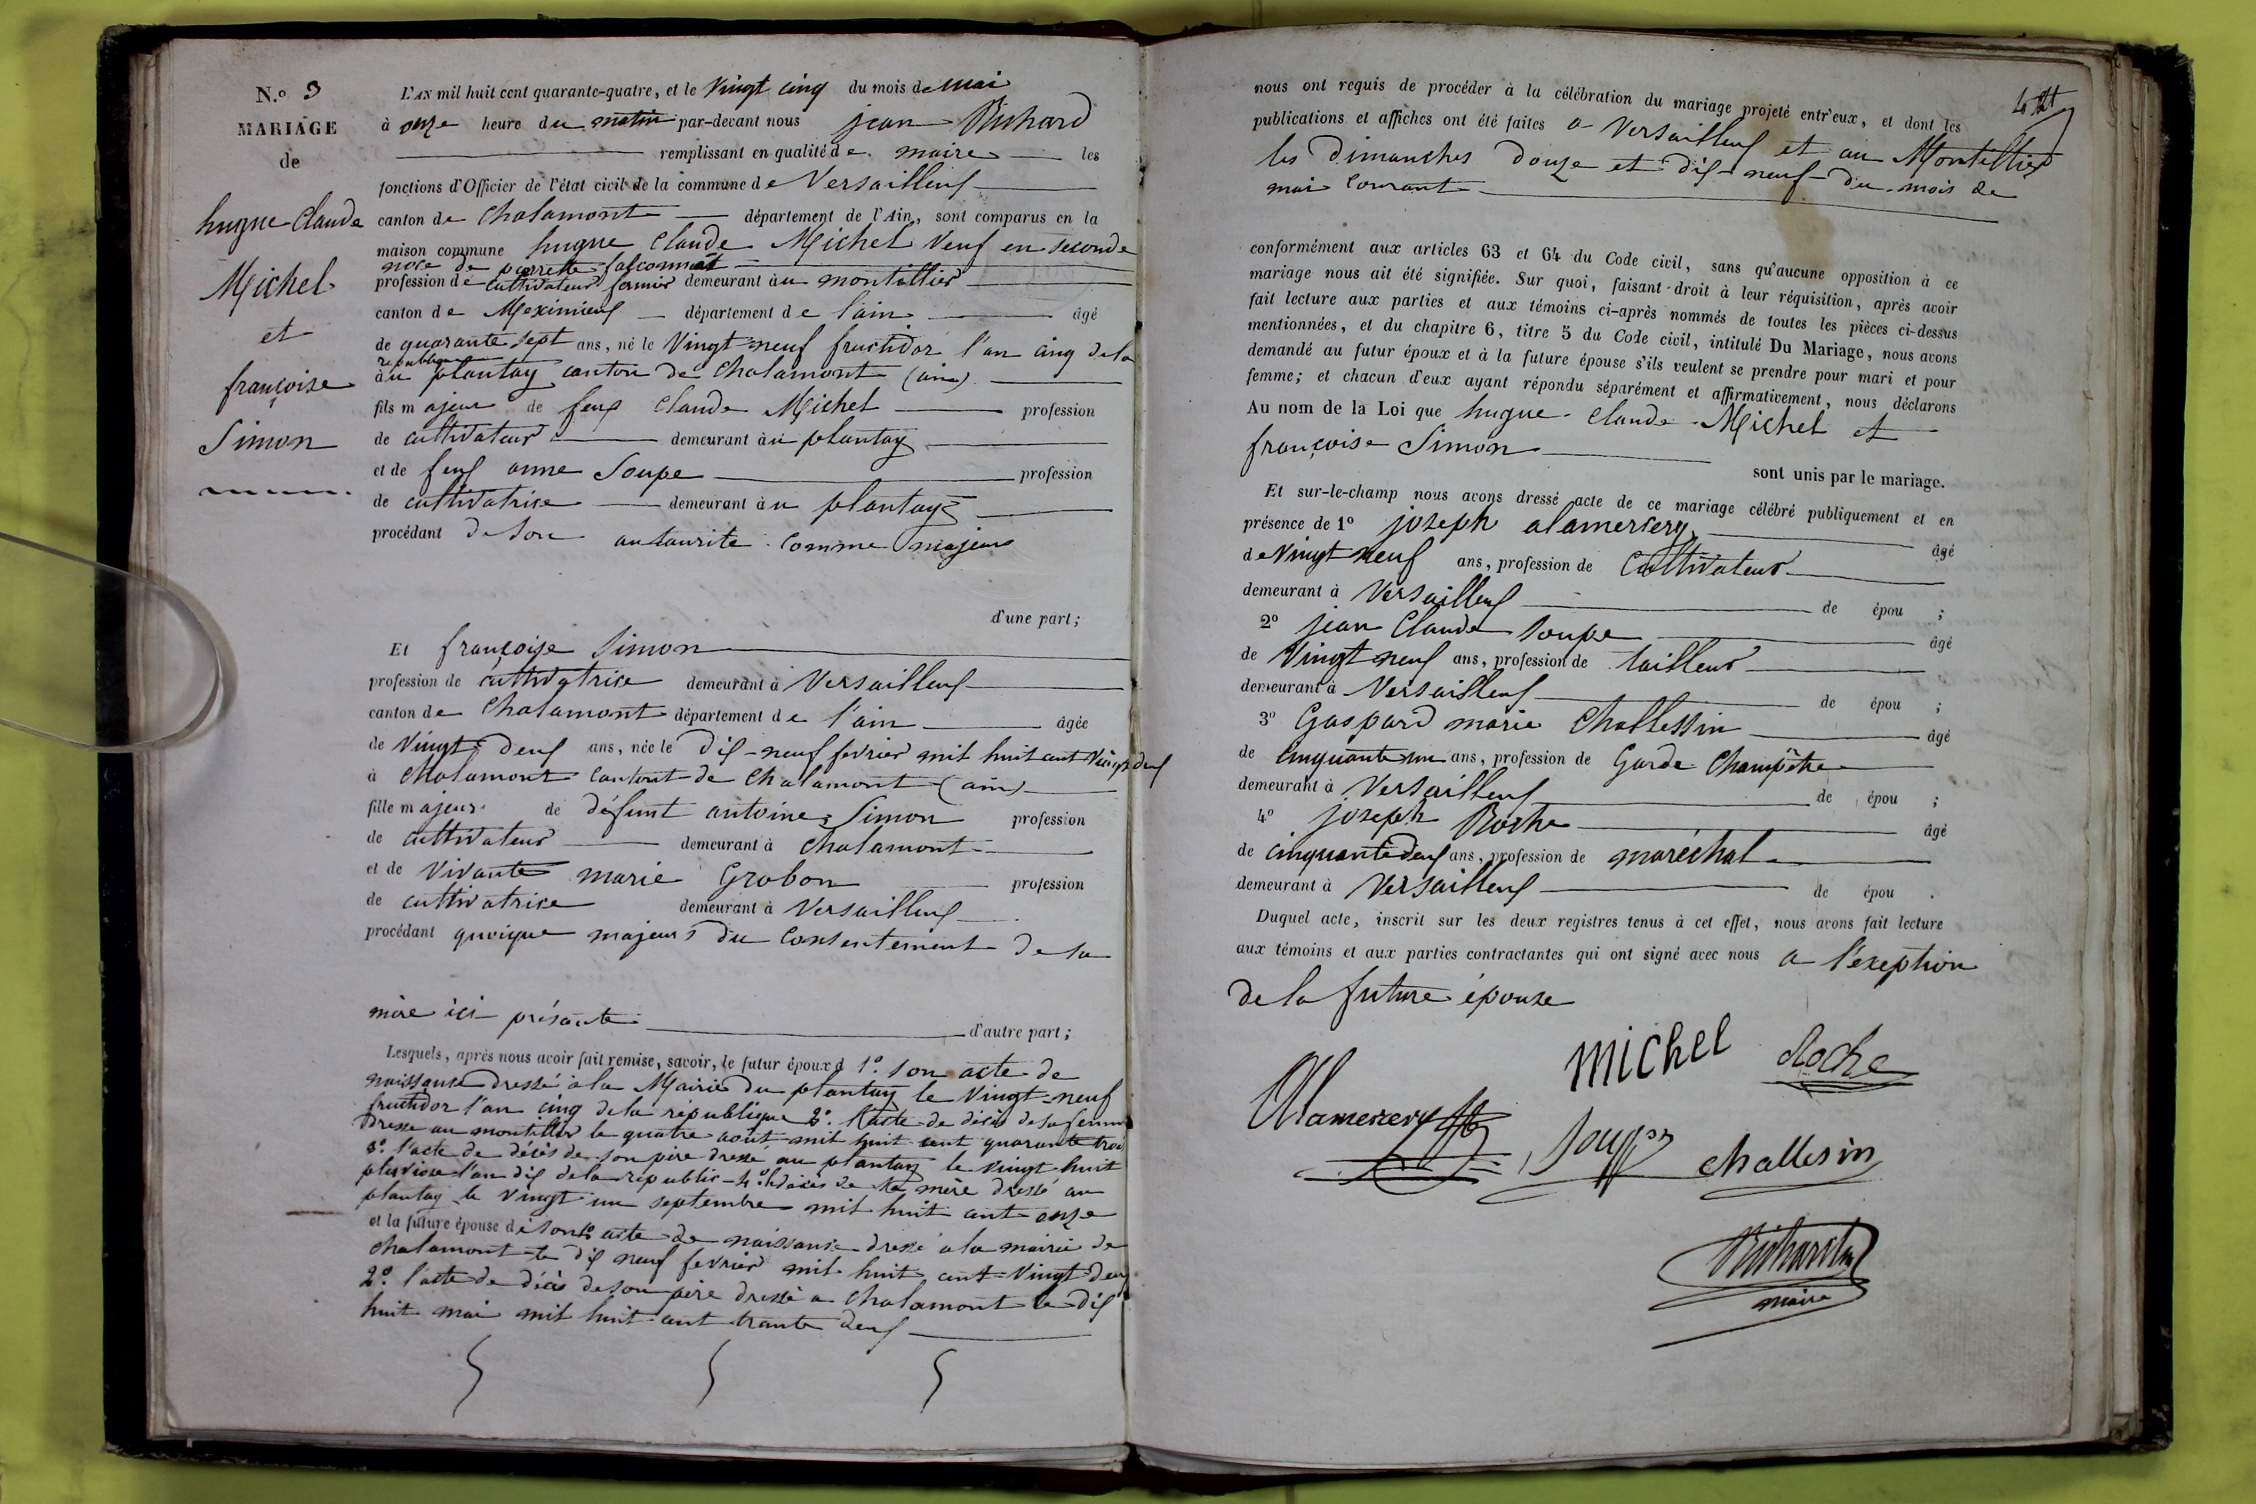 N.o 3
MARIAGE
de
hugue Claude
Michel
et
françoise
Simon
L'AN mil huit cent quarante-quatre, et le Vingt cinq du mois de mai
à onze heure du matin par-devant nous jean Richard
remplissant en qualité de maire les
fonctions d'Officier de l'état civil de la commune de Versailleux
canton de Chalamont département de l'Ain, sont comparus en la
maison commune hugue Claude Michel Veuf en seconde
noce de pierrette falconnat
profession de cultivateur fermier demeurant au montellier
canton de Meximieux département de l'ain âgé
de quarante sept ans, né le Vingt-neuf fructidor l'an cinq de la
republique
au plantay canton de Chalamont (ain)
fils majeur de feux Claude Michel profession
de cultivateur demeurant àu plantay
et de feux anne Soupe profession
de cultivatrice demeurant àu plantay
procédant de son autaurite comme majeur
d'une part;
Et françoise Simon
profession de cultivatrice demeurant à Versailleux
canton de Chalamont département de l'ain âgée
de Vingt-deux ans, née le dix-neuf fevrier mil huit cent Vingt deux
à Chalamont Cantont de Chalamont (ain)
fille majeur de défunt antoine Simon profession
de cultivateur demeurant à Chalamont
et de Vivante marie Grobon profession
de cultivatrice demeurant à Versailleux
procédant quoique majeur du Consentement de sa
mère ici présante d'autre part;
Lesquels, après nous avoir fait remise, savoir, le futur époux d 1.o son acte de
naissance dressé à la Mairie du plantay le Vingt-neuf
fructidor l'an cinq de la république 2.o l'acte de décès de sa femme
dresse au montellier le quatre août mil huit cent quarante trois
3.o l'acte de décès de son père dressé au plantay le vingt huit
pluviose l'an dix de la républic 4.o l decès de sa mère dressé au
plantay le Vingt un septembre mil huit cent onze
et la future épouse de son 1.o acte de naissance dressé a la mairie de
Chalamont le dix neuf fevrier mil huit cent Vingt deux
2.o l'acte de décès de son père dressé a Chalamont le dix
huit mai mil huit cent trante deux
nous ont requis de procéder à la célébration du mariage projeté entr'eux, et dont les
publications et affiches ont été faites a Versailleux et au Montellier
les Dimanches douze et dix-neuf du mois de
mai Courant
conformément aux articles 63 et 64 du Code civil, sans qu'aucune opposition à ce
mariage nous ait été signifiée. Sur quoi, faisant droit à leur réquisition, après avoir
fait lecture aux parties et aux témoins ci-après nommés de toutes les pièces ci-dessus
mentionnées, et du chapitre 6, titre 5 du Code civil, intitulé Du Mariage, nous avons
demandé au futur époux et à la future épouse s'ils veulent se prendre pour mari et pour
femme; et chacun d'eux ayant répondu séparément et affirmativement, nous déclarons
Au nom de la Loi que hugue Claude Michel et
françoise Simon
sont unis par le mariage.
Et sur-le-champ nous avons dressé acte de ce mariage célébré publiquement et en
présence de 1o joseph alamercery âgé
de Vingt neuf ans, profession de Cultivateur
demeurant à Versailleux de épou ;
2o jean Claude Soupe âgé
de Vingt neuf ans, profession de tailleur
demeurant à Versailleux de épou ;
3o Gaspard marie Challessin âgé
de cinquante un ans, profession de Garde Champêtre
demeurant à Versailleux de épou ;
4o joseph Roche âgé
de cinquante deux ans, profession de maréchal
demeurant à Versailleux de épou .
Duquel acte, inscrit sur les deux registres tenus à cet effet, nous avons fait lecture
aux témoins et aux parties contractantes qui ont signé avec nous a l'exeption
de la future épouze
Michel Roche
Alamercery
Soupe Challesin
Richard
maire